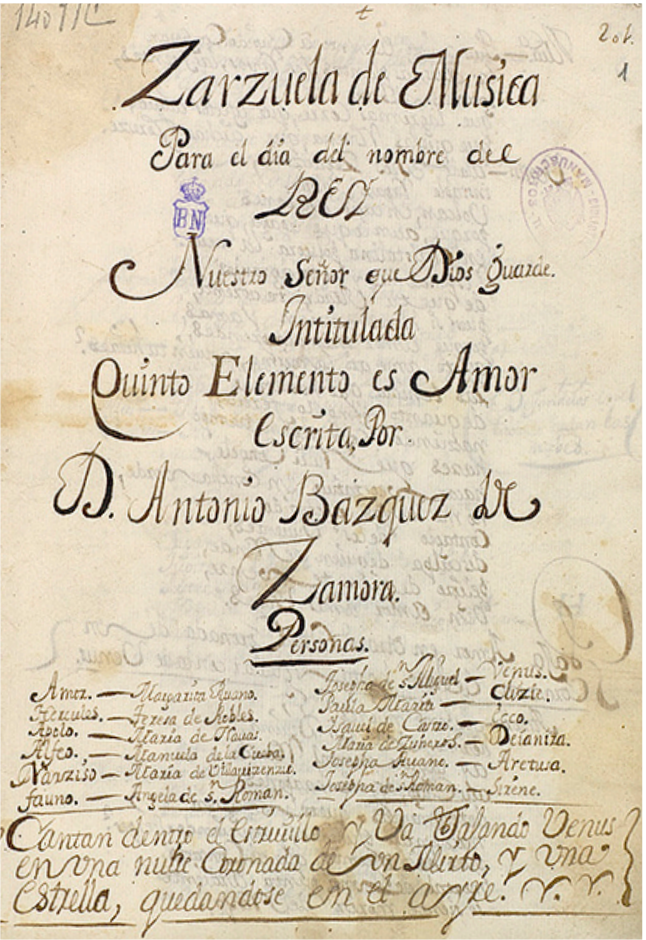 14091C
2 of.
1
Zarzuela de Musica
Para el dia del nombre del
REY
BN
MANUSCRITOS
Nuestro Señor que Dios guarde.
Intitulada
Quinto Elemento es Amor
Escrita, Por.
D. Antonio Bazquez de
Zamora.
Personas.
Amor. — Margarita Ruano.
Hercules. — Teresa de Robles.
Apolo. — Maria de Nauas.
Alfeo. — Manuela de la Cueba.
Narziso — Maria de Villavizenzio.
fauno. — Angela de s.n Roman.
Josepha de s.n Miguel — Venus.
Paula Maria — Clizie.
Isauel de Castro. — Ecco.
Maria de Zisneros. — Deianira.
Josepha Ruane. — Aretusa.
Josepha de s.n Roman. — Sirene.
Cantan dentro el Estriuillo, y Va Vajando Venus
en vna nube Coronada de vn Mirto, y vna
Estrella, quedandose en el ayre.